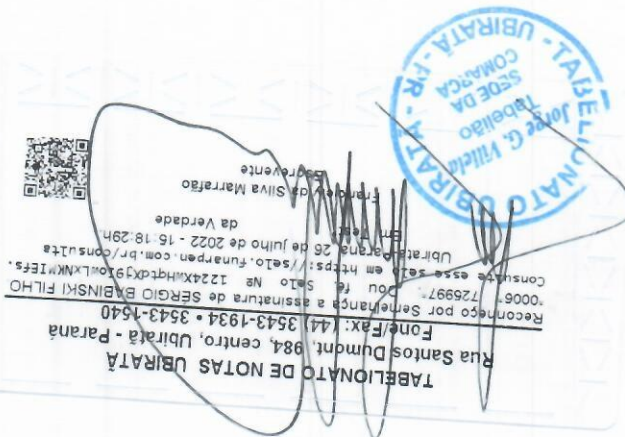 TABELIONATO DE NOTAS UBIRATÃ
Rua Santos Dumont, 984, centro, Ubiratã - Paraná
Fone/Fax: (44) 3543-1934 • 3543-1540
Reconheço por Semelhança a assinatura de SERGIO BABINSKI FILHO
*0006* *725997*. Dou fé. Selo Nº
Consulte esse selo em https://selo.funarpen.com.br/consulta
Ubiratã-Paraná, 26 de julho de 2022 - 15:18:29h.
Em Test da Verdade
Franciely da Silva Marrafão
Escrevente
TABELIONATO UBIRATÃ - UBIRATÃ - PR.
Jorge G. Villela
Tabelião
SEDE DA
COMARCA